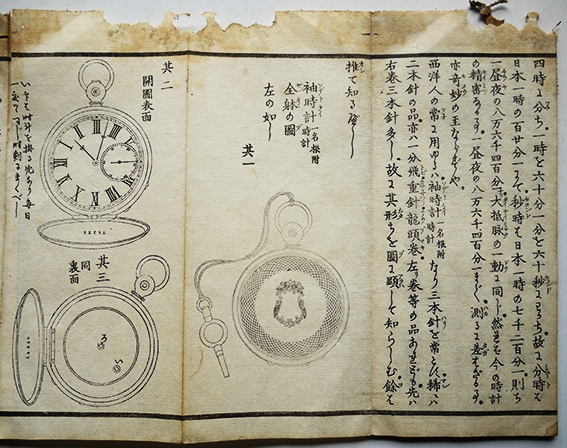 四時に分ち。一時を六十分一分を六十秒にわかち。故に分時を
日本一時の百廿分一にて。秒時を日本一時の七千二百分一。則ち
一昼夜の八万六千四百分一。大抵脉の一動に同し。然るを今の時計
の精密なる。一昼夜の八万六千四百分一まで。測るに差はざる
亦奇妙の至ならずや。
西洋人の常に用ゆるハ袖時計一名根附時計なり三本針を常とす稀にハ
二本針の品亦ハ一分飛重針龍頭巻左り巻等の品あれども先ハ
右巻三本針多し。故に其形さを圖に顕して知らしむ餘を
推て知る べし
袖時計一名根附時計
全躰の圖
左の如し
其一
其二
開圖表面
其三
同
裏面
ろ
い